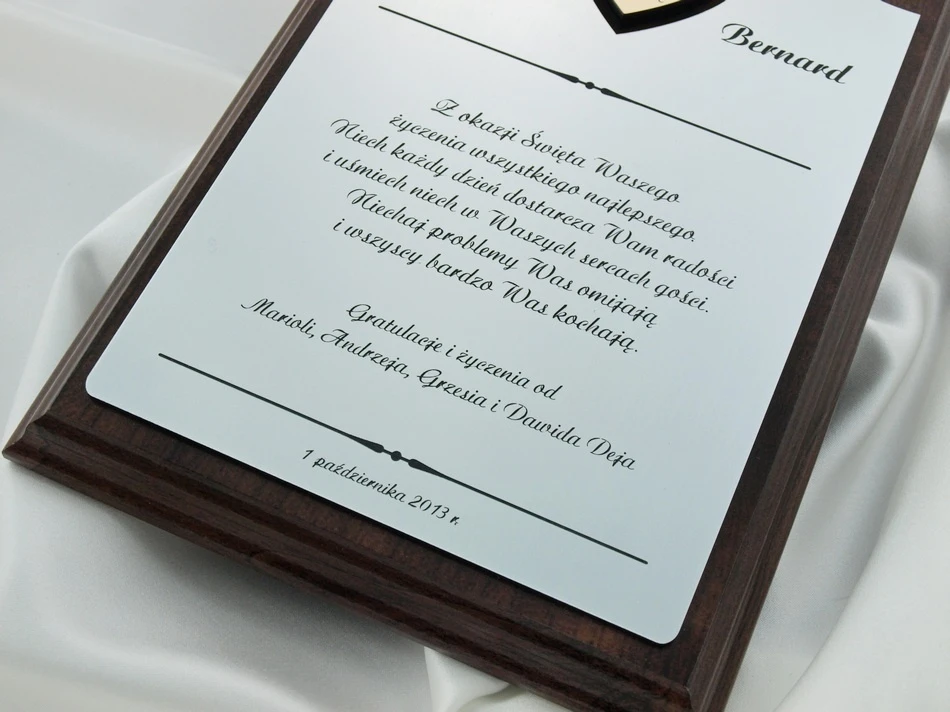 Bernard
Z okazji Święta Waszego
życzenia wszystkiego najlepszego.
Niech każdy dzień dostarcza Wam radości
i uśmiech niech w Waszych sercach gości.
Niechaj problemy Was omijają
i wszyscy bardzo Was kochają.
Gratulacje i życzenia od
Marioli, Andrzeja, Grzesia i Dawida Deja
1 października 2013 r.